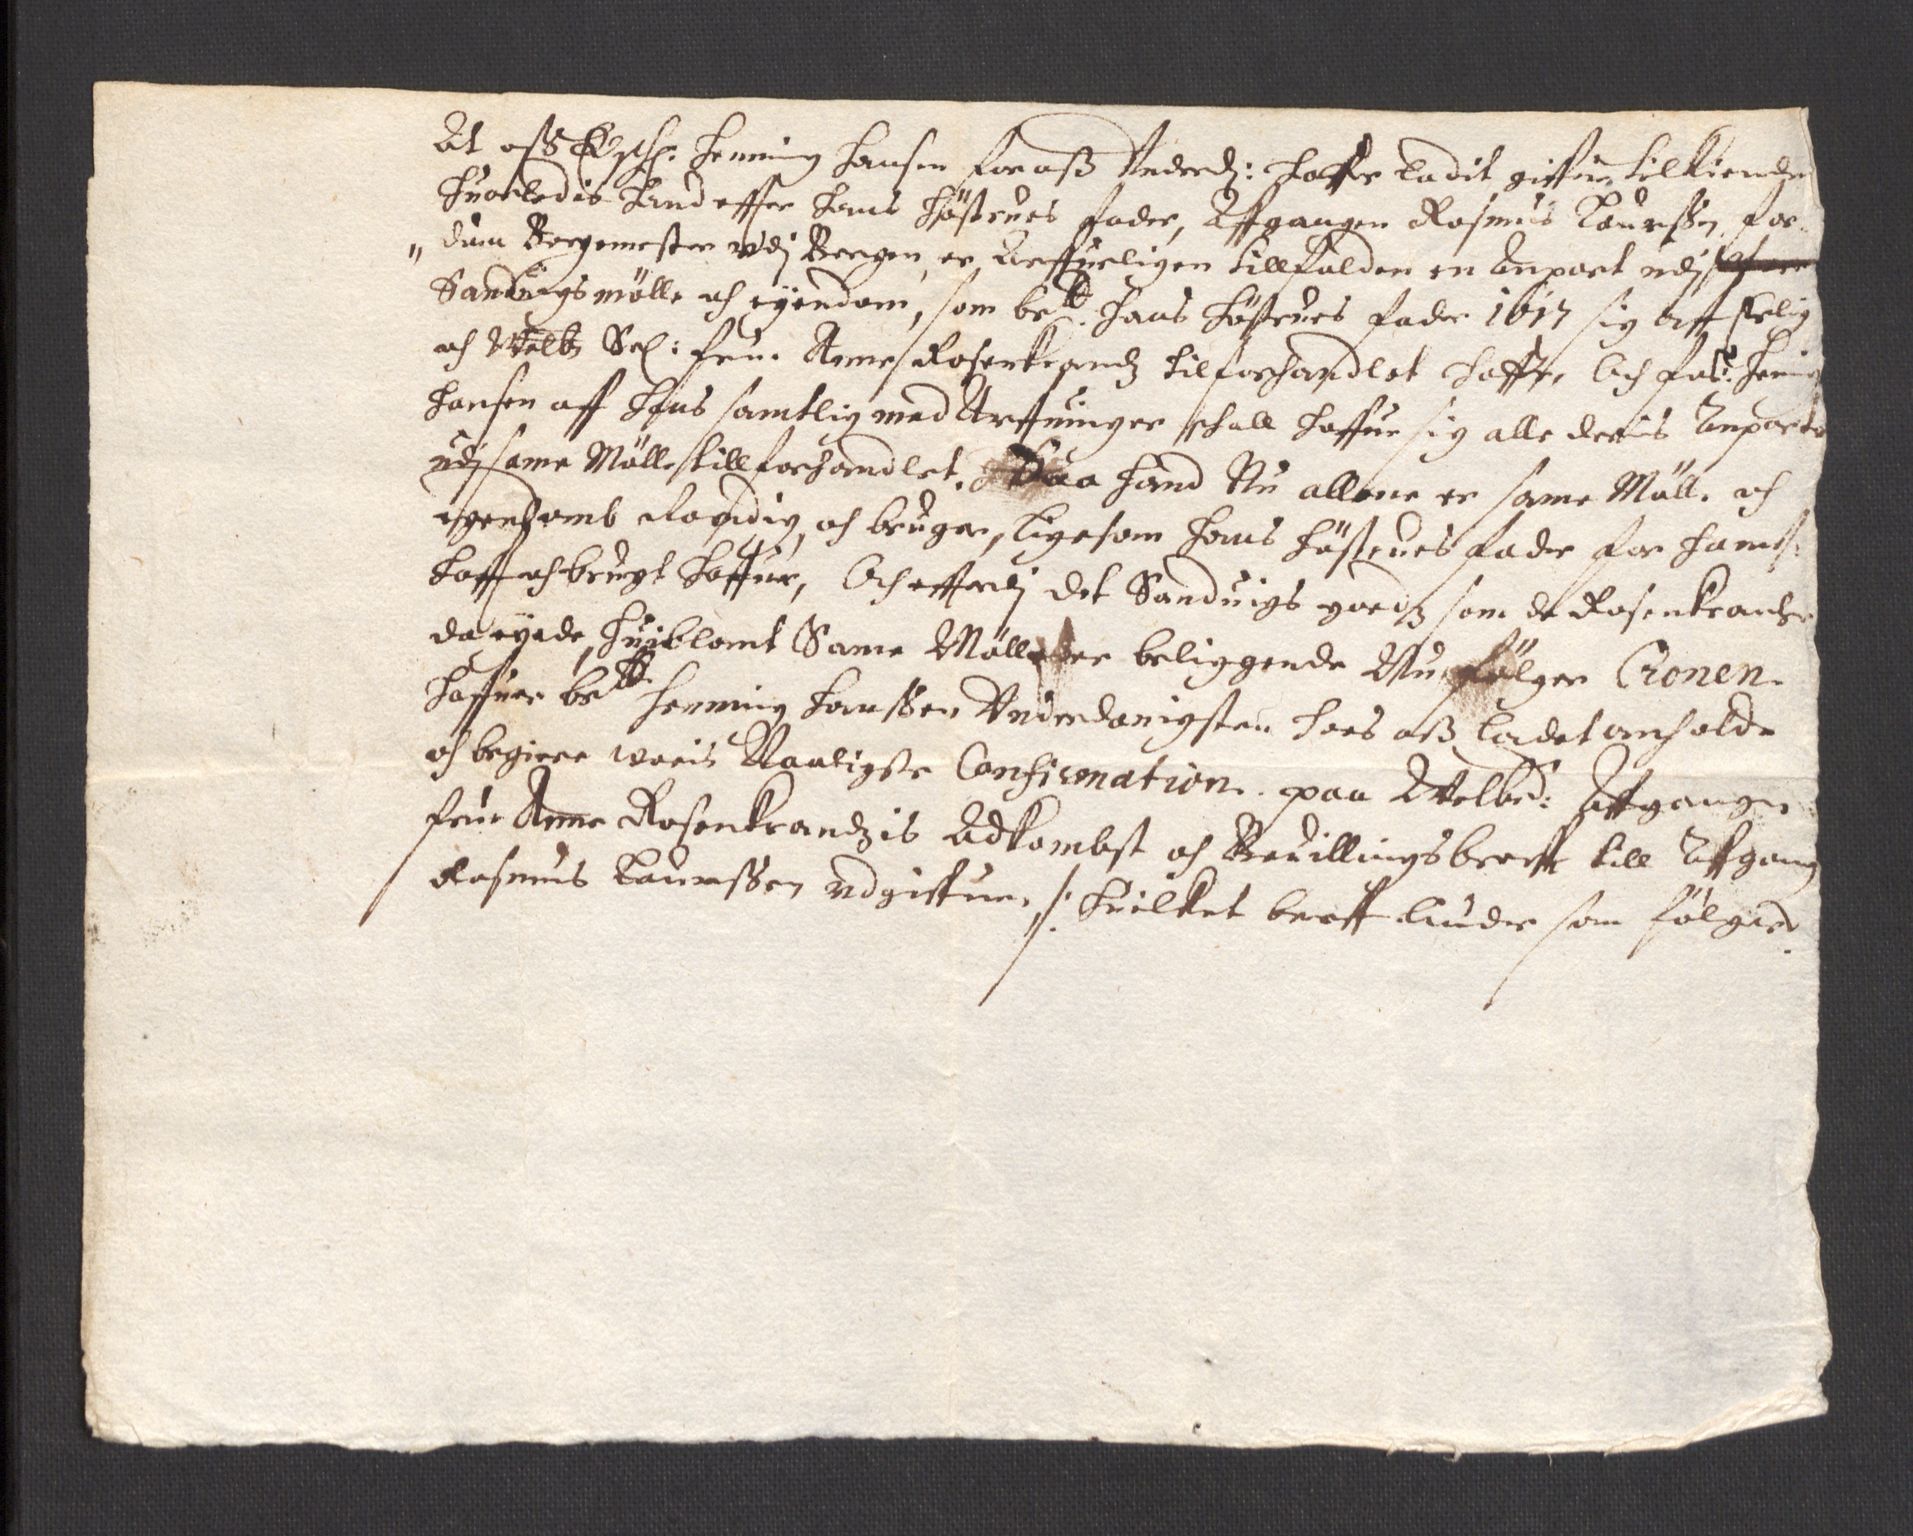 At oss Elsch: Henning Hansen for oss Underd: Haffr ladit giffue tilkiende
huorledis hand effter hans höstrues fader, Affgangen Rasmus Laurssen for-
" dum Borgemester vdj Bergen er Arffueligen tillfalden en Anpart udj
Sanduigs mölle och eyendom, som bete. hans höstrues fader 1617 sig Aff erlig
och Welb: Sel: frue Anne Rosenkrandz tilforhandlet haffr, Och for: Hening
Hansen aff hans samtlig med Arffuinger schall haffue sig alle deris Anparter
udj same Mölle tillforhandlet. Saa hand Nu allene er same Mölle och
egendomb Raadig, och bruger, Ligesom hans höstrues fader for hannem
hafft och brugt haffuer, Och effterdj det Sanduigs goedz som de Rosenkrantzer
da eyede, huiblant Same Mölle er beliggende Nu fölger Cronen.
haffuer bete Henning Hanssen Underdanigsten hoes oss ladet anholde
och begiere woris Naaligste Confirmation paa Welbd: Affgangen
frue Anne Rosenkrandzis Adkombst och Beuillingsbreff till Affgang
Rasmus Laurssen udgiffuen ./: huilket breff liuder som fölger.